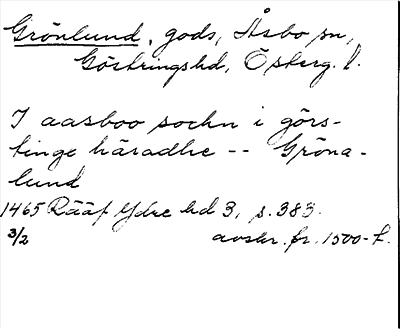 Grönlund, gods, Åsbo sn,
Göstringshd, Österg. l.
I aasboo sochn i görs-
tinge häradhe -- Gröna-
lund
1465 Rääf Ydre hd 3, s. 383.
3/2 avskr. fr. 1500-t.